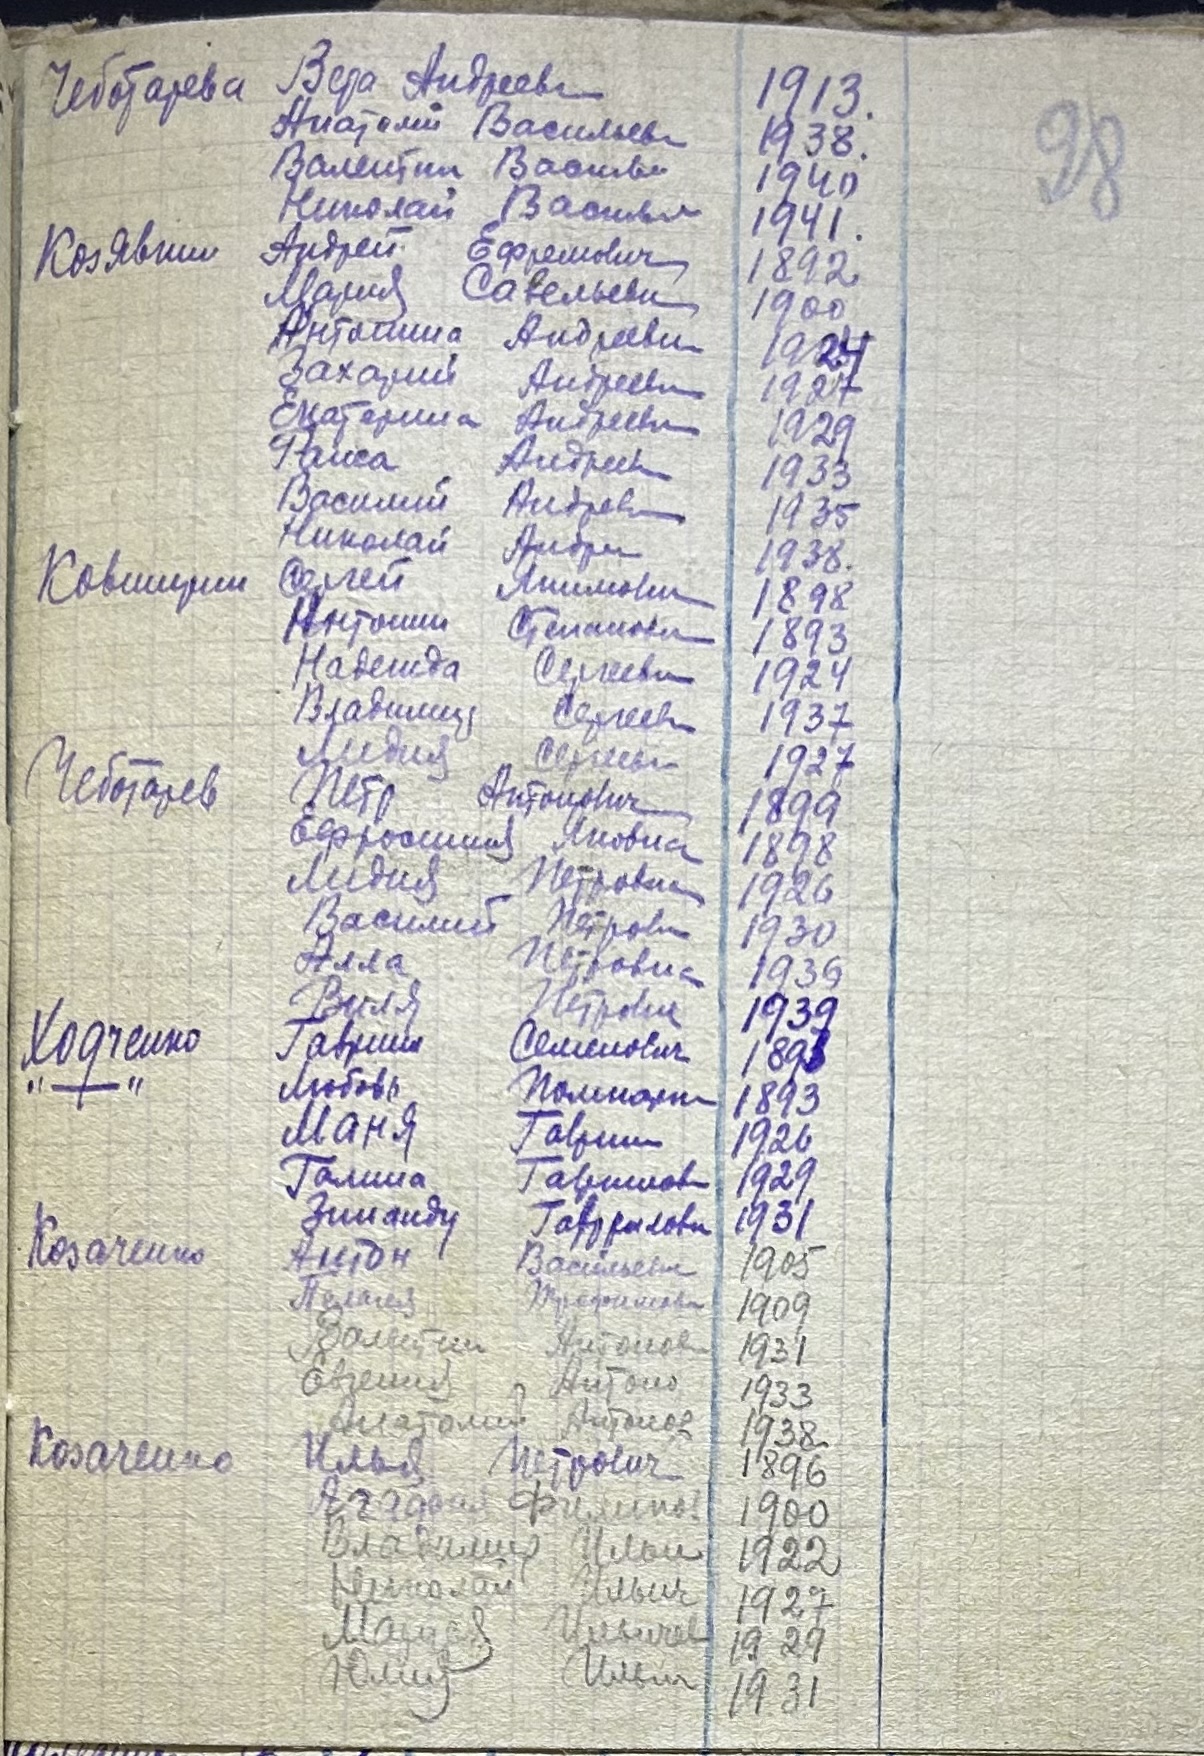 98
Чеботарева Вера Андреевн 1913.
Анатолий Васильевн 1938.
Валентин Василье 1940
Николай Василье 1941.
Козявкин Андрей Ефремович 1892
Мария Савельевн 1900
Антонина Андреевн 1924
Захарий Андреевн 1927
Екатерина Андреевн 1929
Раиса Андреев 1933
Василий Андреев 1935
Николай Андре 1938.
Ковширин Сергей Якимович 1898
Антонин Степановн 1893
Надежда Сергеевн 1924
Владимир Сергеев 1937
Лидия Сергеев 1927
Чеботарев Петр Антонович 1899
Ефросиния Яковна 1898
Лидия Петровна 1926
Василий Петров 1930
Алла Петровна 1936
Виля Петровна 1939
Ходченко Гаврил Семенович 1893
"—" Любовь Поликарп 1893
Маня Гаврил 1926
Галина Гаврилов 1929
Зинаиду Гавриловн 1931
Козаченко Антон Васильевич 1905
Пелагея Трофимовн 1909
Валентин Антонов 1931
Евгения Антоно 1933
Анатолий Антонов 1938
Козаченко Илья Петрович 1896
Агафья Филипов 1900
Владимир Ильич 1922
Николай Ильич 1927
Мария Ильичев 1929
Юлия Ильич 1931